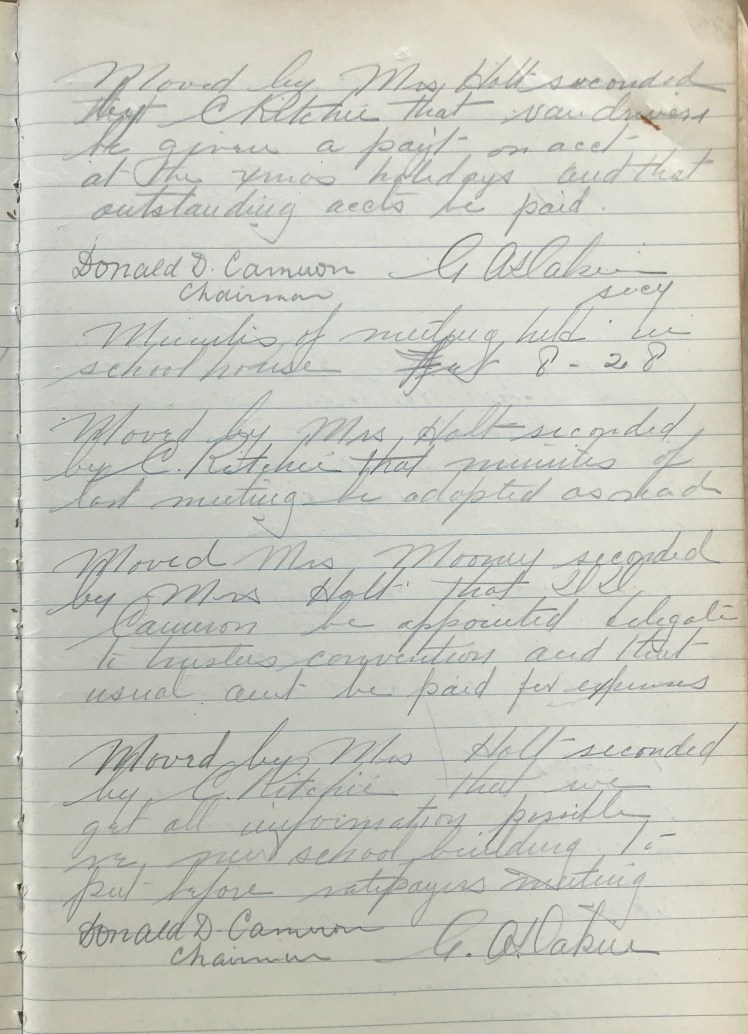 Moved by Mrs Holt seconded
by C Ritchie that van drivers
be given a payt on acct
at the xmas holidays and that
outstanding accts be paid.
Donald D. Cameron
Chairman
secy
Minutes of meeting held in
school house 8-28
Moved by Mrs Holt seconded
by C. Ritchie that minutes of
last meeting be adopted as read
Moved Mrs Mooney seconded
by Mrs Holt that D D
Cameron be appointed delegate
to trustees convention and that
usual amt be paid for expenses
Moved by Mrs Holt seconded
by C. Ritchie that we
get all information possible
re new school building to
put before ratepayers meeting
Donald D. Cameron
Chairman